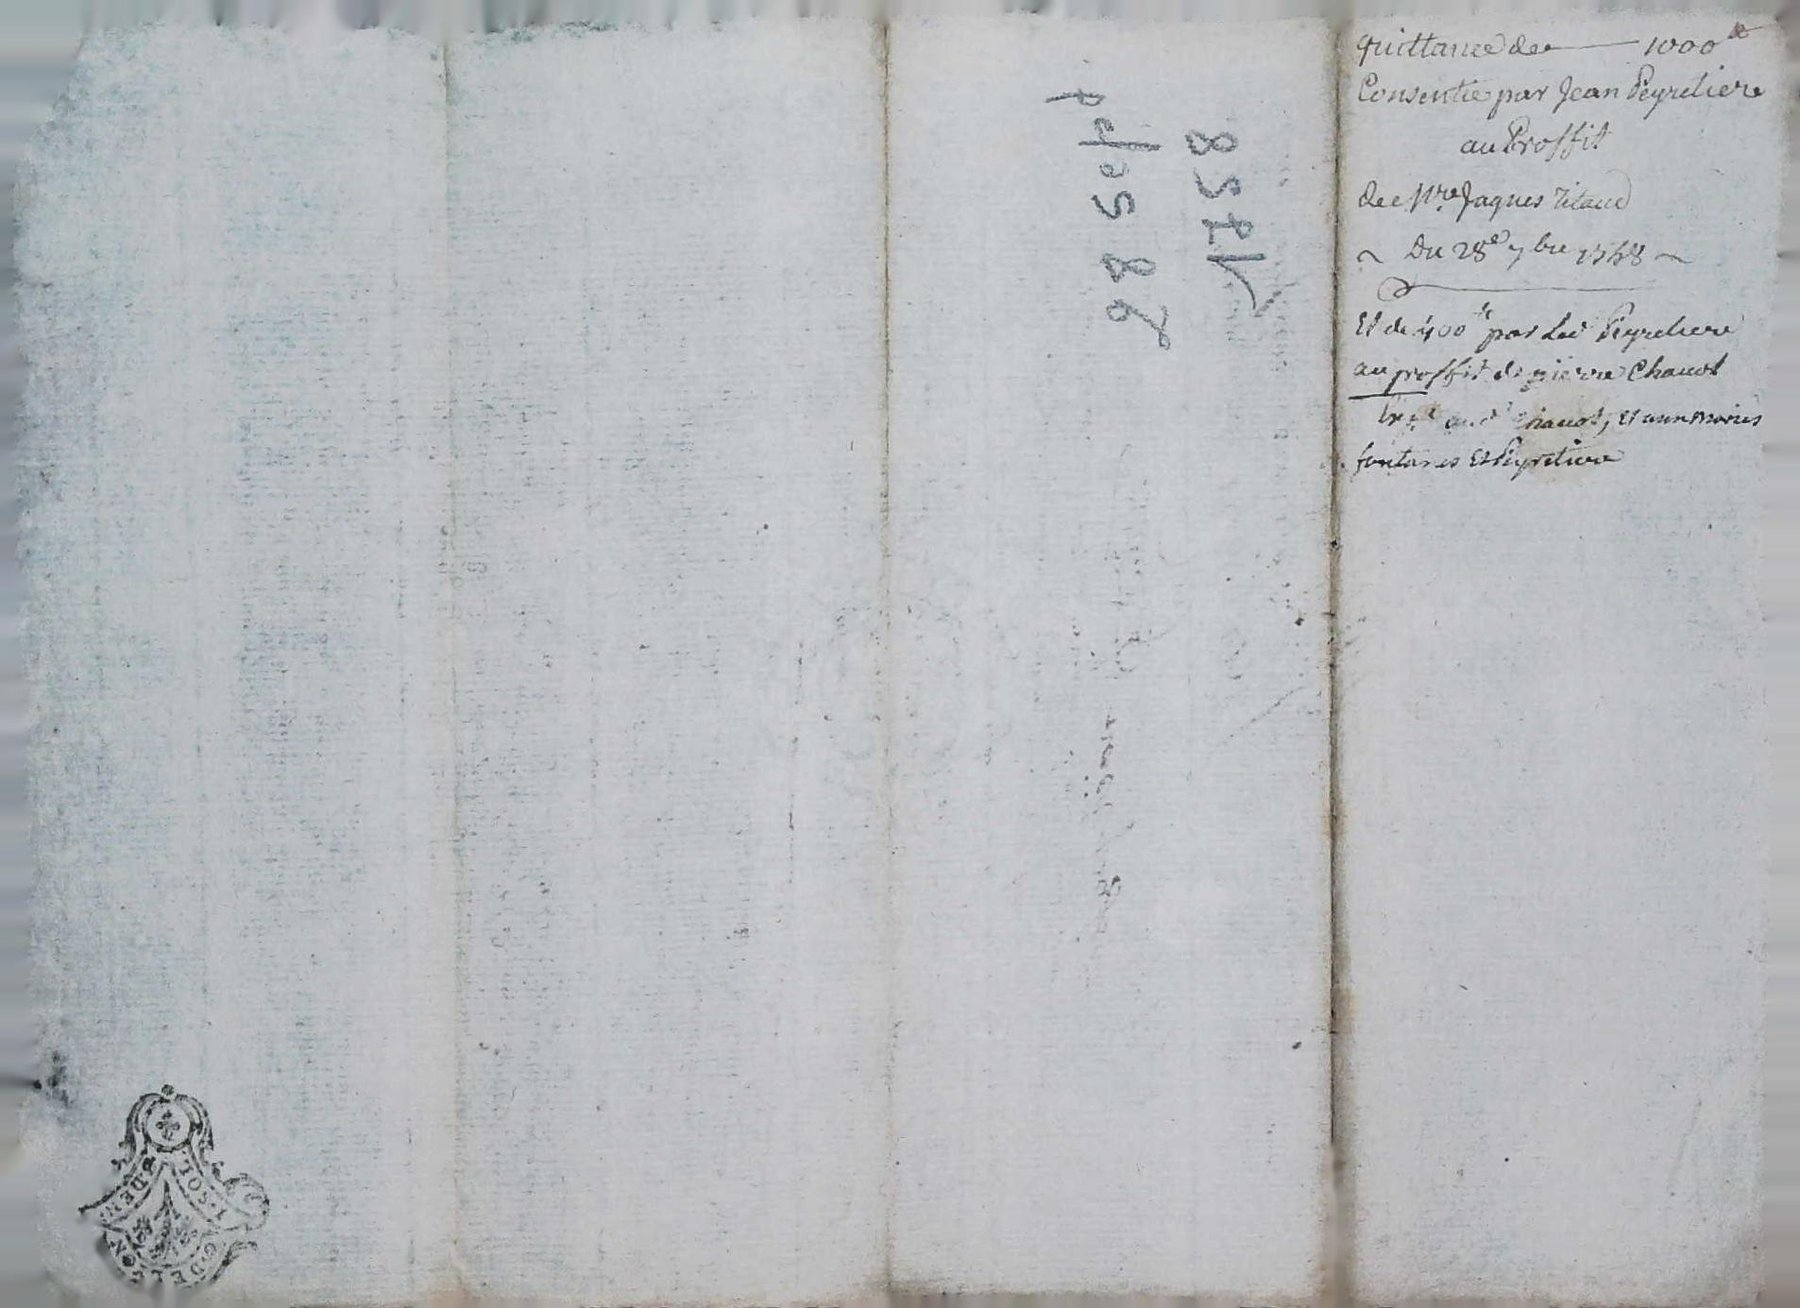 quittance de 1000 lt
Consentie par Jean Peyreliere
au Proffit
de Mre Jaques
~ Du 28e 7bre 1758 ~
Et de 400 lt par Led Peyreliere
au proffit de pierre Chauot
aud Chauot, Et anne marie
fontanes Et Peyreliere
1758
SOL
DEN
G. DE LYON